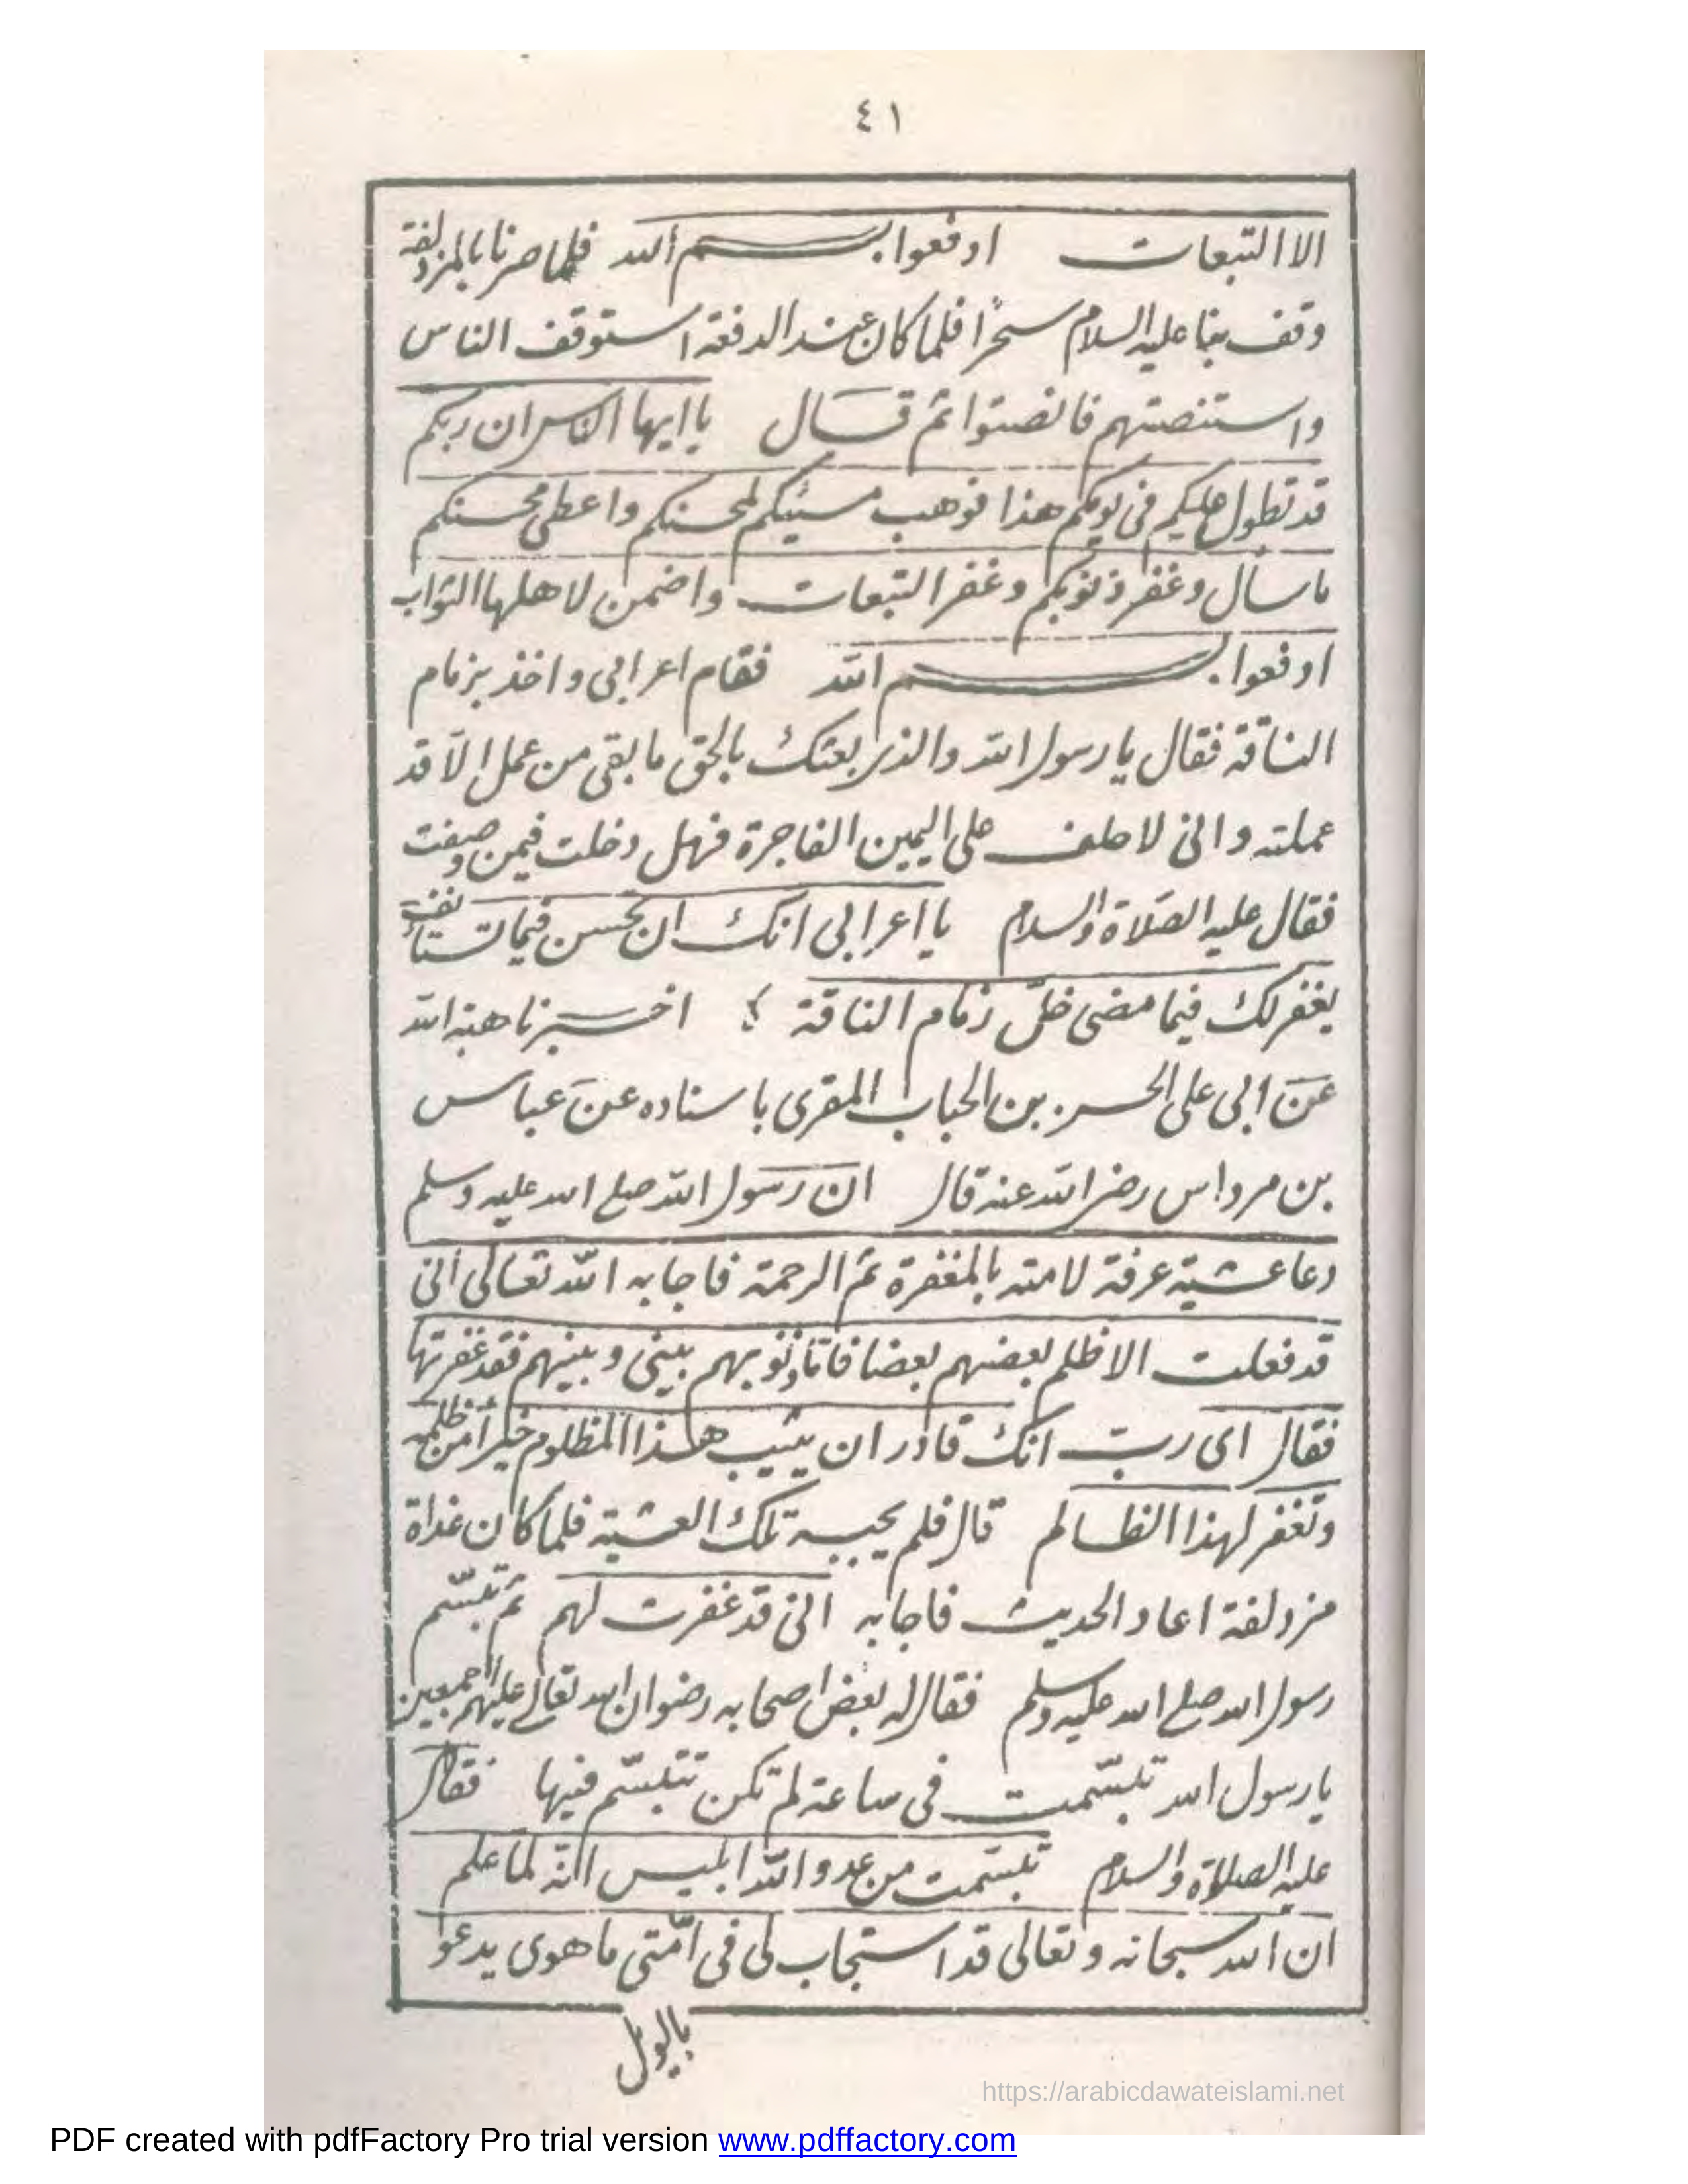 ٤١
الا التبعات ادفعوا بسم الله فلما صرنا بالمزدلفة
وقف بنا عليه السلام سحرًا فلما كان عند الدفعة استوقف الناس
واستنصتهم فانصتوا ثم قال ياايها الناس ان ربكم
قد تطول عليكم فى يومكم هذا فوهب مسيئكم لمحسنكم واعطى محسنكم
ما سأل وغفر ذنوبكم وغفر التبعات واضمن لاهلها الثواب
ادفعوا بسم الله فقام اعرابى واخذ بزمام
الناقة فقال يا رسول الله والذى بعثك بالحق ما بقى من عمل الّا قد
عملته وانى لاحلف على اليمين الفاجرة فهل دخلت فيمن وصفت
فقال عليه الصلاة والسلام يا اعرابى انك ان تحسن فيما تستأنف
يغفر لك فيما مضى خلّ زمام الناقة اخبرنا هبة الله
عن ابى على الحسن بن الحباب المقرى باسناده عن عباس
بن مرداس رضى الله عنه قال ان رسول الله صلى الله عليه وسلم
دعا عشية عرفة لامته بالمغفرة ثم الرحمة فاجابه الله تعالى انى
قد فعلت الا ظلم بعضهم بعضا فاما ذنوبهم بينى وبينهم فقد غفرتها
فقال اى ربّ انك قادر ان يثيب هذا المظلوم خيرًا من ظلمه
وتغفر لهذا الظالم قال فلم يجيبه تلك العشية فلما كان غداة
مزدلفة اعاد الحديث فاجابه انى قد غفرت لهم ثم تبسّم
رسول الله صلى الله عليه وسلم فقال له بعض اصحابه رضوان الله تعالى عليهم اجمعين
يا رسول الله تبسّمت فى ساعة لم تكن تتبسّم فيها فقال
عليه الصلاة والسلام تبسّمت من عدو الله ابليس انّه لما علم
ان الله سبحانه وتعالى قد استجاب لى فى امّتى ما هوى يدعو
بالويل
https://arabicdawateislami.net
PDF created with pdfFactory Pro trial version www.pdffactory.com